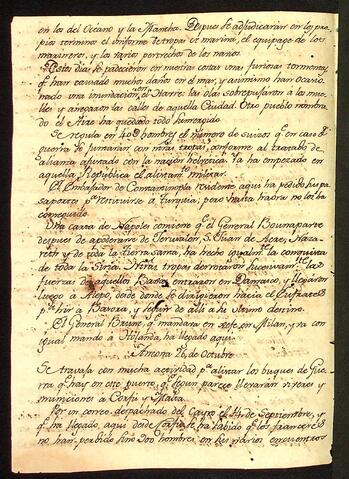 en los del Océano y la Mancha. Despues se adjudicarán en los pro
pios terminos el uniforme de tropa de marina, el equipage de los
marineros, y los varios pertrechos de los navios.
Estos dias se padecieron en nuestras costas una furiosa tormenta,
q.e han causado mucho daño en el mar, y asimismo han ocasio
nado una inundacion en el Havre: las olas sobrepasaron a los mue
lles y anegaron las calles de aquella Ciudad. Otro pueblo nombra
do el ha quedado todo sumergido.
Se regula en 40@ hombres el número de suizos q.e en caso de
guerra se juntarán con nras tropas, conforme al tratado de
alianza ajustado con la nacion helvetica. Ya ha empezado en
aquella Republica el alistam.to militar.
El Embaxador de Constantinopla residente aqui ha pedido sus pa
saportes p.a restituirse a turquia; pero hasta haora no los ha
conseguido.
Una carta de Napoles contiene q.e el General Bounaparte
despues de apoderarse de Jerusalen, S. Juan de Acre, Naza
reth y de toda la Tierra santa, ha hecho igualm.te la conquista
de toda la Siria. Nuestras tropas derrotaron sucesivam.te las
fuerzas de aquellos Baxás, entraron en Damasco, y llegaron
luego a Alepo, desde donde se dirigieron hacia el Eufrates
p.a ir á Basora, y seguir de alli a su ultimo destino.
El General Brune, q.e mandara en xefe en Milan, y va con
igual mando á Holanda, ha llegado aqui.
Ancona 26 de Octubre
Se travaja con mucha actividad p.a alistar los buques de Gue
rra q.e hay en este puerto, q.e segun parece llevarán viveres y
municiones a Corfú y Malta.
Por un correo despachado del Cayro el 4 de Septiembre, y
q.e ha llegado, aqui desde Corfú se ha sabido q.e los franceses
no han perdido sino dos hombres, en los varios encuentros